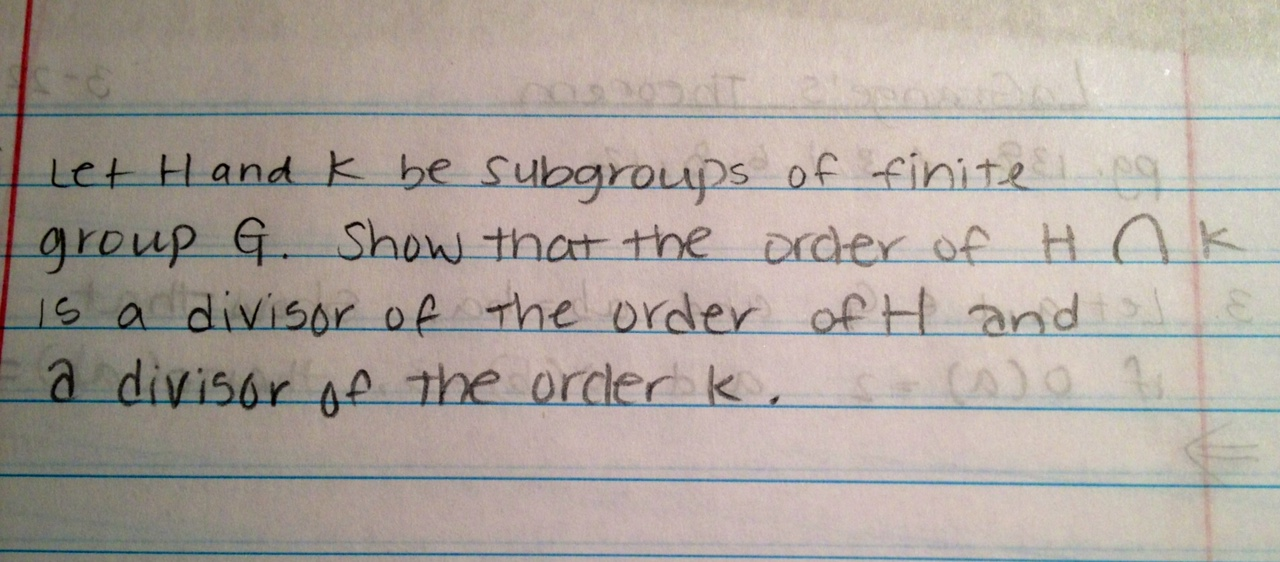 Let H and K be subgroups of finite
group G. Show that the order of H ∩ K
is a divisor of the order of H and
a divisor of the order K.